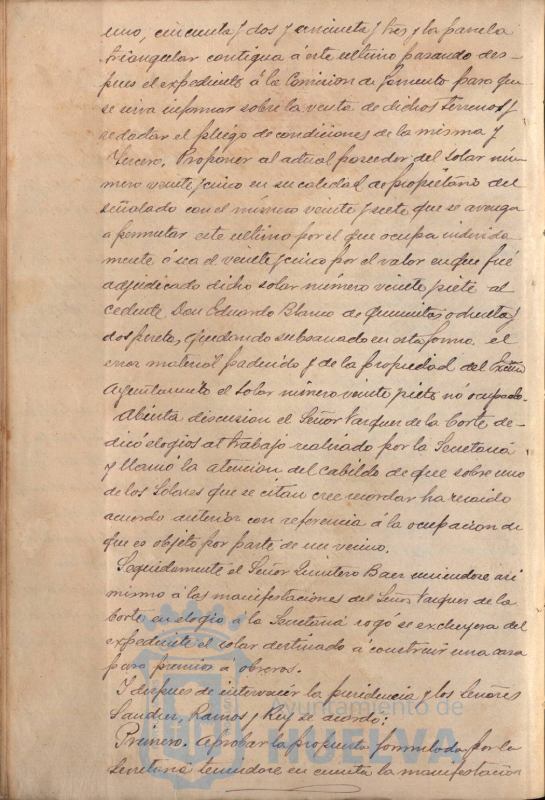 uno, cincuenta y dos y cincuenta y tres y la parcela
triangular contigua á este ultimo pasando des-
pues el expediente á la Comision de fomento para que
se sirva informar sobre la venta de dichos terrenos y
redactar el pliego de condiciones de la misma y
Tercero. Proponer al actual poseedor del solar nú-
mero veinte y cinco en su calidad de propietario del
señalado con el número veinte y siete que se avenga
a permutar este ultimo por el que ocupa indevida
mente ó sea el veinte y cinco por el valor en que fué
adjudicado dicho solar número veinte y siete al
cedente Don Eduardo Blanco de quinientas ochenta y
dos pesetas, quedando subsanado en esta forma el
error material padecido y de la propiedad del Excmo
Ayuntamiento el solar número veinte y siete no ocupado.
Abierta discusion el Señor Vazquez de la Corte de-
dicó elogios al trabajo realizado por la Secretaría
y llamó la atencion del cabildo de que sobre uno
de los Solares que se citan cree recordar ha recaido
acuerdo anterior con referencia á la ocupacion de
que es objeto por parte de un vecino.
Seguidamente el Señor Quintero Baez uniendose asi
mismo á las manifestaciones del Señor Vazquez de la
Corte en elogio á la Secretaría rogó se excluyera del
expediente el solar destinado á construir una casa
para premios á obreros.
Y despues de intervenir la presidencia y los Señores
Saudin, Ramos y Rey se acordó:
Primero. Aprobar la propuesta formulada por la
Secretaría teniendose en cuenta la manifestacion
Ayuntamiento de
HUELVA